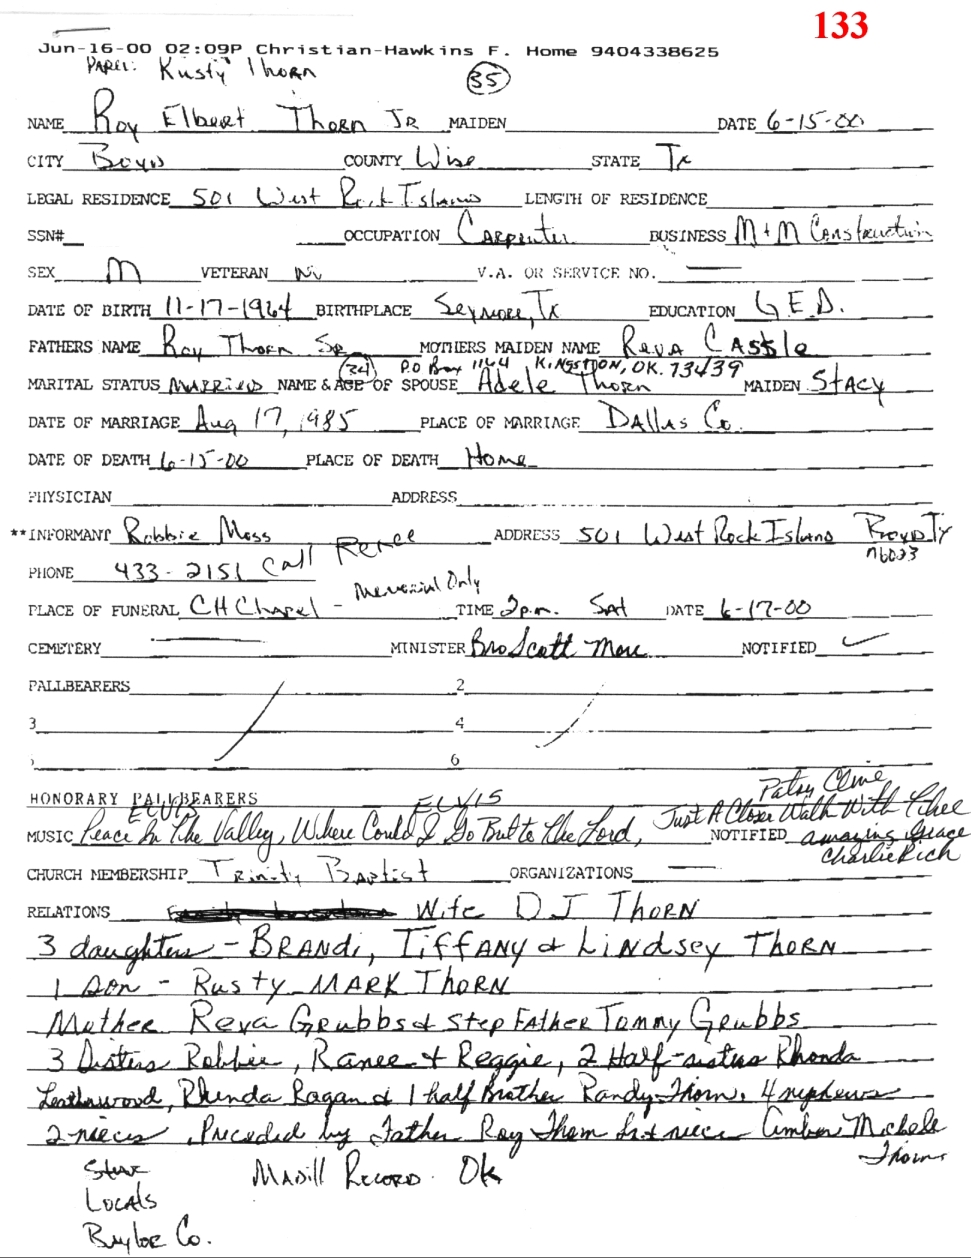 133
Jun-16-00 02:09P Christian-Hawkins F. Home 9404338625
Rusty Thorn
35
NAME Roy Elbert Thorn Jr MAIDEN DATE 6-15-00
CITY Boyd COUNTY Wise STATE Tx
LEGAL RESIDENCE 501 West Rock Island LENGTH OF RESIDENCE
SSN# OCCUPATION Carpenter BUSINESS M+M Construction
SEX M VETERAN No V.A. OR SERVICE NO.
DATE OF BIRTH 11-17-1964 BIRTHPLACE Seymore, Tx EDUCATION G.E.D.
FATHERS NAME Roy Thorn Sr MOTHERS MAIDEN NAME Reva Cassle
(34) P.O Box 1144 KINGSTON, OK. 73439
MARITAL STATUS MARRIED NAME & AGE OF SPOUSE Adele Thorn MAIDEN Stacy
DATE OF MARRIAGE Aug 17, 1985 PLACE OF MARRIAGE DAllas Co.
DATE OF DEATH 6-15-00 PLACE OF DEATH Home
PHYSICIAN ADDRESS
**INFORMANT Robbie Moss ADDRESS 501 West Rock Island Boyd Tx
76023
PHONE 433-2151 Call Renee
Memorial Only
PLACE OF FUNERAL CH Chapel - TIME 2p.m. Sat DATE 6-17-00
CEMETERY MINISTER Bro Scott More NOTIFIED ✓
PALLBEARERS 2
3 4
6
HONORARY PALLBEARERS
ELVIS ELVIS Patsy Cline
MUSIC Peace In The Valley, Where Could I Go But to The Lord, Just A Closer Walk With Thee
NOTIFIED amazing Grace
Charlie Rich
CHURCH MEMBERSHIP Trinity Baptist ORGANIZATIONS
RELATIONS Wife DJ THORN
3 daughters - BRANDi, TiffANY & LiNdsey THORN
1 son - Rusty MARK THORN
Mother Reva Grubbs & StepFather Tommy Grubbs
3 Sisters Robbie, Ranee & Reggie, 2 Half-sisters Rhonda
Leatherwood, Rhinda Ragan & 1 half Brother Randy Thorn. 4 nephews
2 nieces. Preceded by Father Roy Thorn Sr & niece Amber Michele
Thorn
Madill Record. Ok
Locals
Baylor Co.